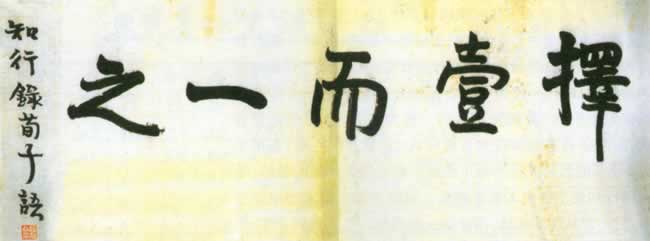 擇壹而一之
知行錄荀子語